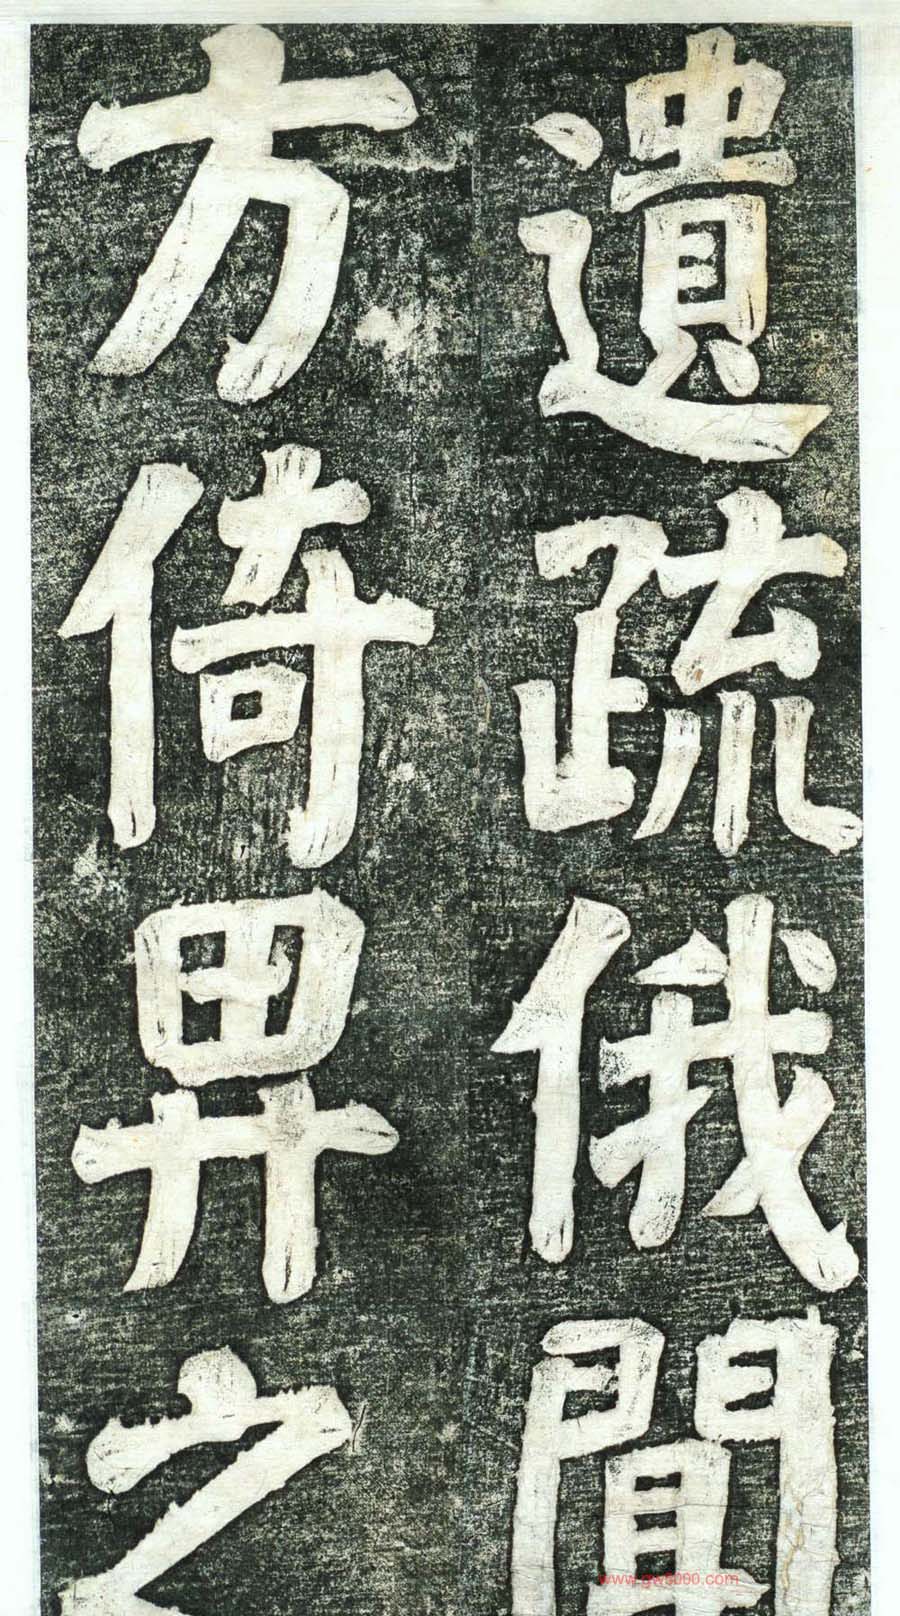 遺疏俄聞
方倚畀之
www.gw5000.com